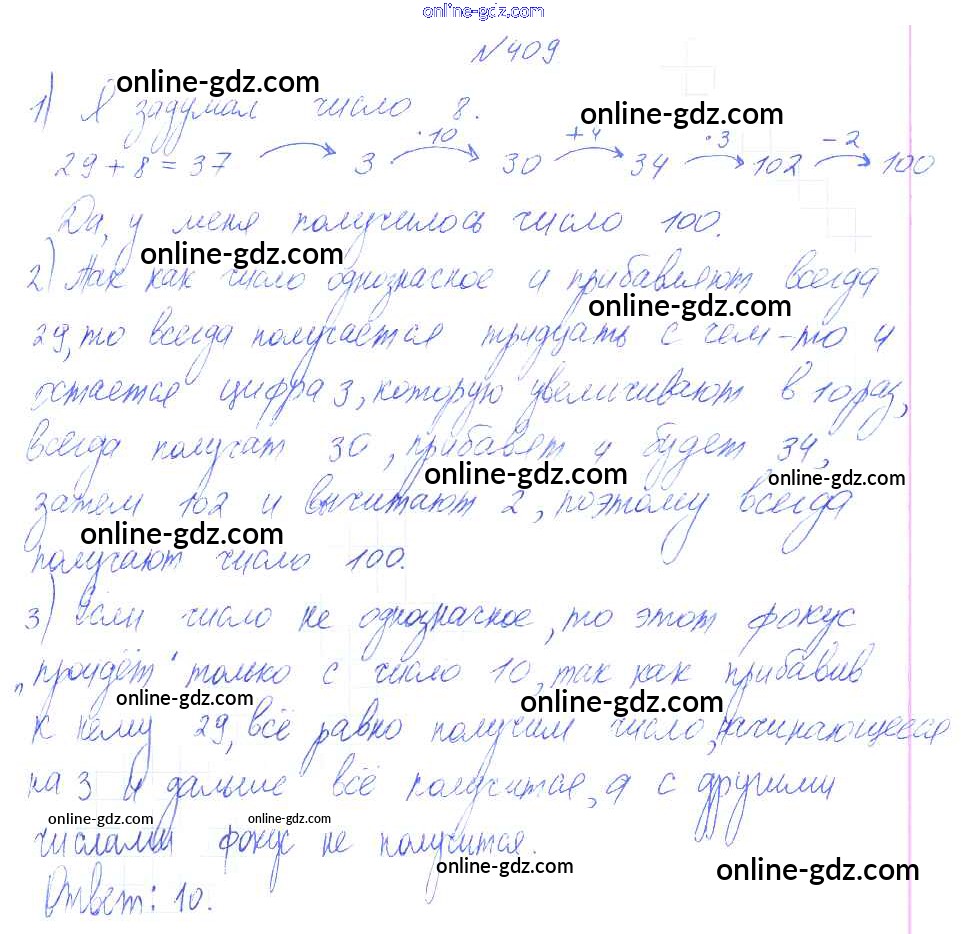 online-gdz.com
№409
online-gdz.com
1) Я задумал число 8.
online-gdz.com
·10 +4 ·3 -2
29+8=37 3 30 34 102 100
Да, у меня получилось число 100.
online-gdz.com
2) Так как число однозначное и прибавляют всегда
online-gdz.com
29, то всегда получается тридцать с чем-то и
остается цифра 3, которую увеличивают в 10 раз,
всегда получат 30, прибавят 4 будет 34,
online-gdz.com
online-gdz.com
затем 102 и вычитают 2, поэтому всегда
online-gdz.com
получают число 100.
3) Если число не однозначное, то этот фокус
"пройдёт" только с число 10, так как прибавив
online-gdz.com
online-gdz.com
к нему 29, всё равно получим число, начинающееся
на 3 и дальше всё получится, а с другими
online-gdz.com
online-gdz.com
числами фокус не получится.
online-gdz.com
online-gdz.com
Ответ: 10.